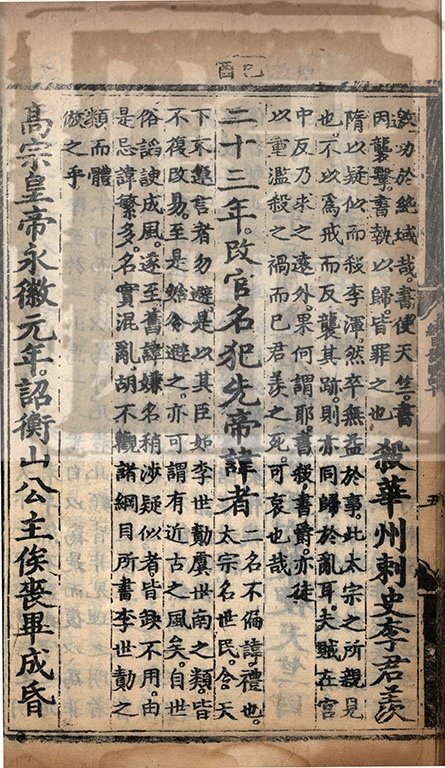 己酉
功於絶域哉。書使天竺。書
因襲擊。書執以歸。皆罪之也
殺華州刺史李君羨
隋以疑似而殺李渾。然卒無益於事。此太宗之所親見
也。不以為戒而反襲其跡。則亦同歸於亂耳。夫賊在宫
中反乃求之遠外。果何謂耶。書殺。書爵。亦徒
以重濫殺之禍而已。君羨之死。可哀也哉
二十三年。改官名犯先帝諱者
二名不偏諱。禮也。
太宗名世民。令天
下不連言者勿避。是以其臣如李世勣虞世南之類。皆
不復改易。至是始令避之。亦可謂有近古之風矣。自世
俗謟諛成風。遂至舊諱嫌名稍涉疑似者皆缺不用。由
是忌諱繁多。名實混亂。胡不觀諸綱目所書李世勣之
類而體
倣之乎
高宗皇帝永徽元年。詔衡山公主俟喪畢成昏